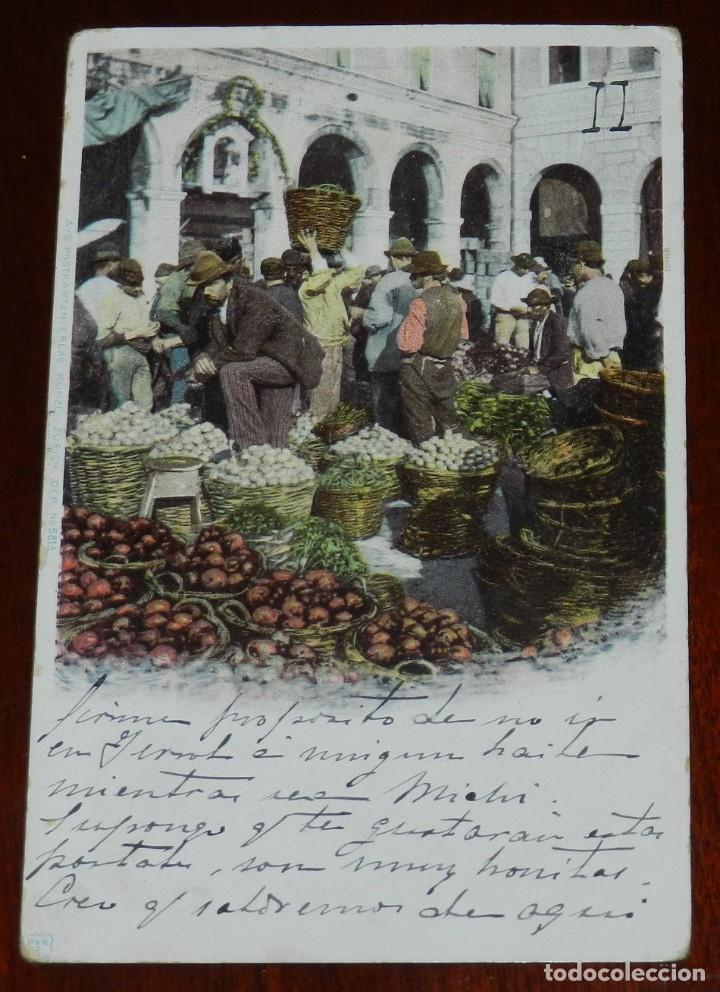 II
A.-G. POSTKARTENVERLAG KÜNZLI, ZÜRICH. DEP. No 5813
firme proposito de no ir
en Ferrol á ningun baile
mientras sea Michi.
Supongo q/ te gustarán estas
postales, son muy bonitas.
Creo q/ saldremos de aquí
PVK
todocoleccion.net